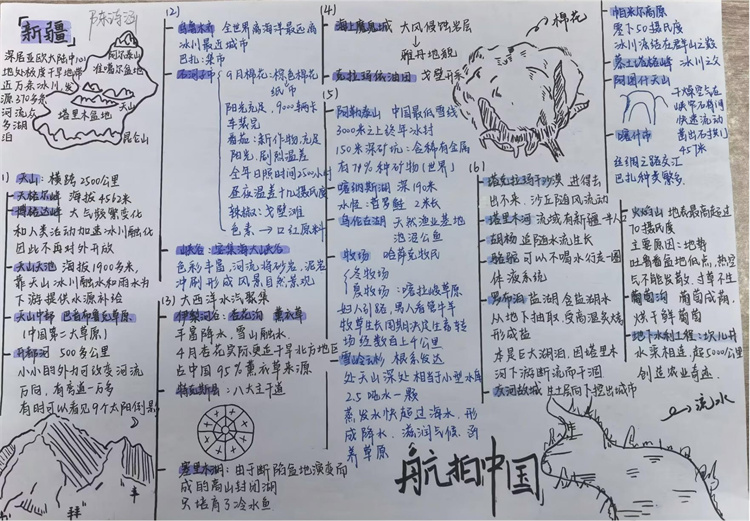 「新疆」
陈诗涵
深居亚欧大陆中
地处极度干旱地带
近万条冰川发
源370多条
河流点
多湖
泊
阿尔泰山
准噶尔盆地
天山
塔里木盆地
昆仑山
1)天山：横跨2500公里
天格尔峰 海拔4562米
博格达峰 大气频繁变化
和人类活动加速冰川融化
因此不再对外开放
天山天池 海拔1900多米，
靠天山冰川融水和雨水为
下游提供水源补给
天山中部 巴音布鲁克草原
(中国第二大草原)
开都河 500多公里
小小的外力可改变河流
方向，有弯道一万多
有时可以看见9个太阳倒影
(2)
乌鲁木齐 全世界离海洋最远离
冰川最近城市
巴扎：集市
石河子市 9月棉花：棕色棉花
纸币
阳光充足，9000辆卡
车装完
番茄：新作物，充足
阳光，剧烈温差
全年日照时间2500小时
昼夜温差十几摄氏度
辣椒：戈壁滩
色素→口红原料
色彩丰富，河流将砂岩、泥岩
冲刷形成风景自然景观
(3)大西洋水汽聚集
伊犁河谷：杏花沟 薰衣草
丰富降水，雪山融水.
占中国95%薰衣草来源
特克斯县：八大主干道
赛里木湖：由于断陷盆地演变而
成的高山封闭湖
只培育了冷水鱼
(4)
海上魔鬼城 大风侵蚀岩层
↓
雅丹地貌
克拉玛依油田
(5)
阿勒泰山 中国最低雪线
3000米之上终年冰封
150米深矿坑：含稀有金属
有74%种矿物(世界)
喀纳斯湖 深190米
水怪：哲罗鲑 2米长
乌伦古湖 天然渔业基地
池沼公鱼
牧场 哈萨克牧民
冬牧场
夏牧场：喀拉峻草原
妇人引路，男人看管牛羊
牧草生长周期决定生畜转
场 经数百上千公里
雪岭云杉 根系发达
处天山深处 相当于小型水库
2.5吨水一颗
蒸发水快超过海水，形
成降水，滋润与候、函
养草原
棉花
(6)
塔克拉玛干沙漠 进得去
出不来，沙丘随风流动
塔里木河 流域有新疆一半人口
胡杨 追随水流生长
骆驼 可以不喝水幻支一圈
体液系统
罗布泊 盐湖 含盐湖水
从地下抽取，受高温炙烤
形成盐
本是巨大湖泊，因塔里木
河下游断流而干涸
交河故城 生土层向下挖出城市
帕米尔高原
零下50摄氏度
冰川冻结在群山之巅
慕士塔格峰 冰川之父
阿图什天山
干燥空气在
峡谷有间
快速流动
高出石拱门
457米
喀什市
丝绸之路交汇
巴扎种类繁多
火焰山 地表最高超过
70摄氏度
主要原因：地势
吐鲁番盆地低点，热空
气不能发散，寸草不生
葡萄沟 葡萄成荫，
烘干鲜葡萄
地下水利工程：坎儿井
水渠相连，超5000公里
创造农业奇迹
→流水
航拍中国